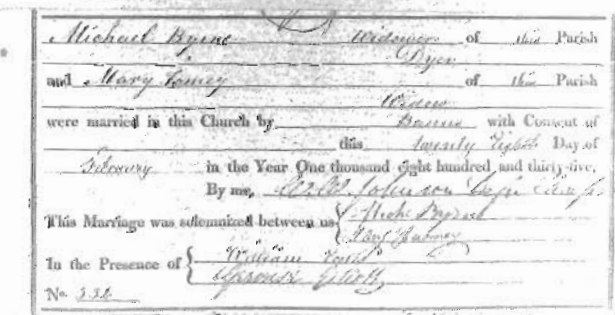 Michael Byrne Widower of this Parish
Dyer
and Mary of this Parish
Widow
were married in this Church by Banns with Consent of
this twenty Eighth Day of
February in the Year One thousand eight hundred and thirty-five,
By me, Johnson
This Marriage was solemnized between us { Byrne
Mary
In the Presence of { William
No. 332